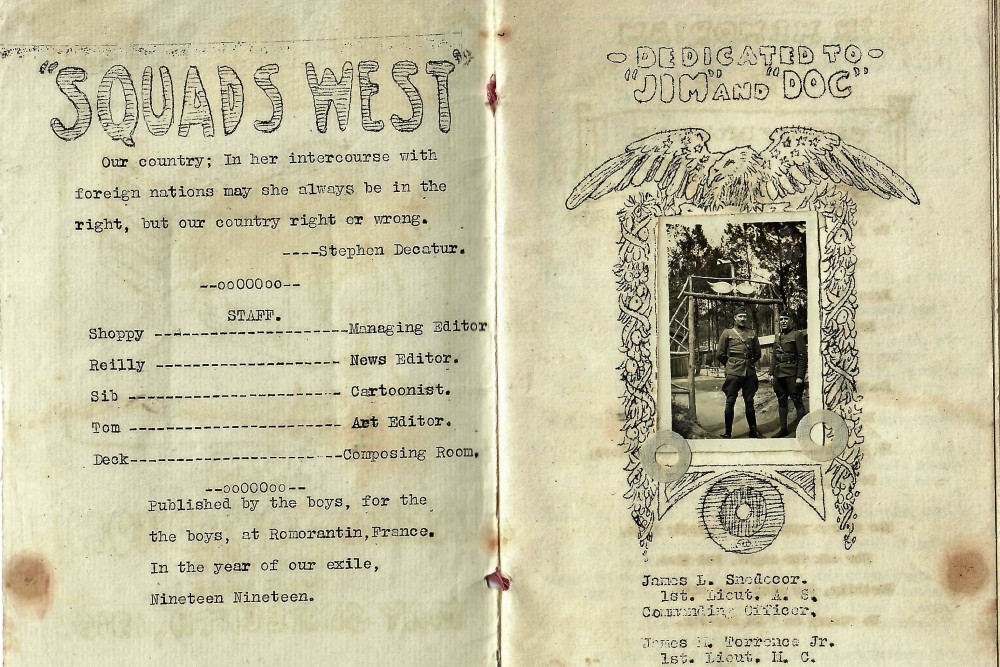 "SQUADS WEST"
Our country; In her intercourse with
foreign nations may she always be in the
right, but our country right or wrong.
----Stephen Decatur.
--ooOOOoo--
STAFF.
Shoppy ----------------------Managing Editor
Reilly --------------------- News Editor.
Sib ------------------------ Cartoonist.
Tom ------------------------ Art Editor.
Deck------------------------Composing Room.
--ooOOOoo--
Published by the boys, for the
the boys, at Romorantin,France.
In the year of our exile,
Nineteen Nineteen.
-DEDICATED TO-
"JIM" AND "DOC"
James L. Snedecor.
1st. Lieut. A. S.
Commanding Officer.
James H. Torrence Jr.
1st. Lieut. M. C.